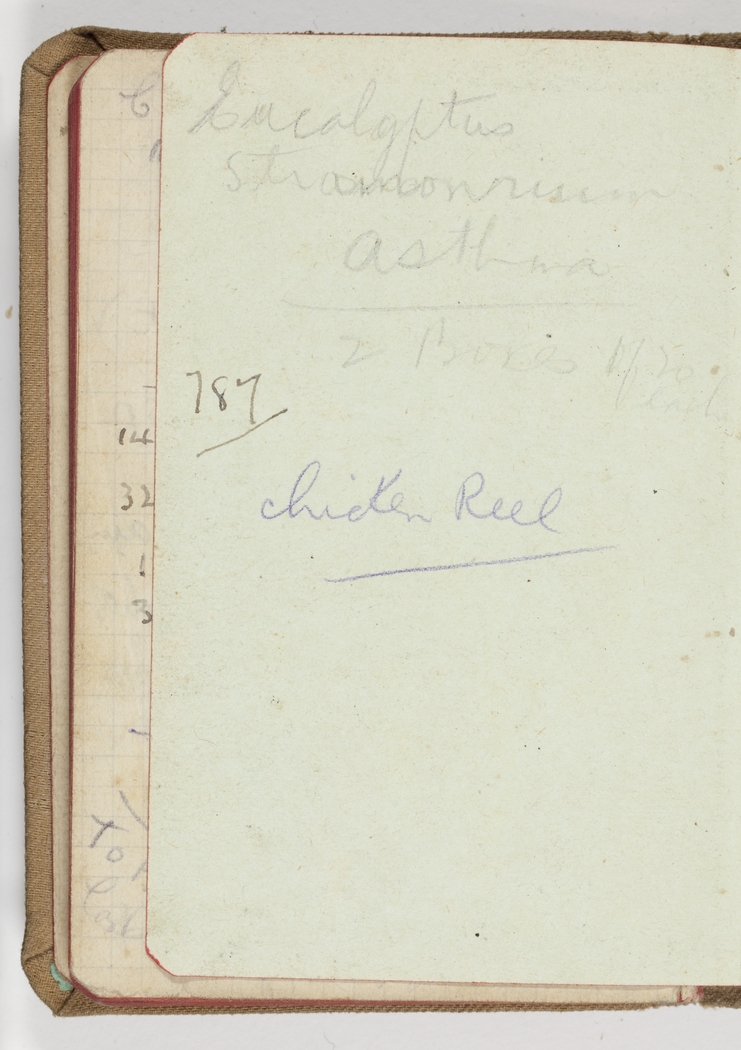 Eucalyptus
Stramonium
asthma
2 Boxes of 20
each
787
chicken Reel
14
32
1
3